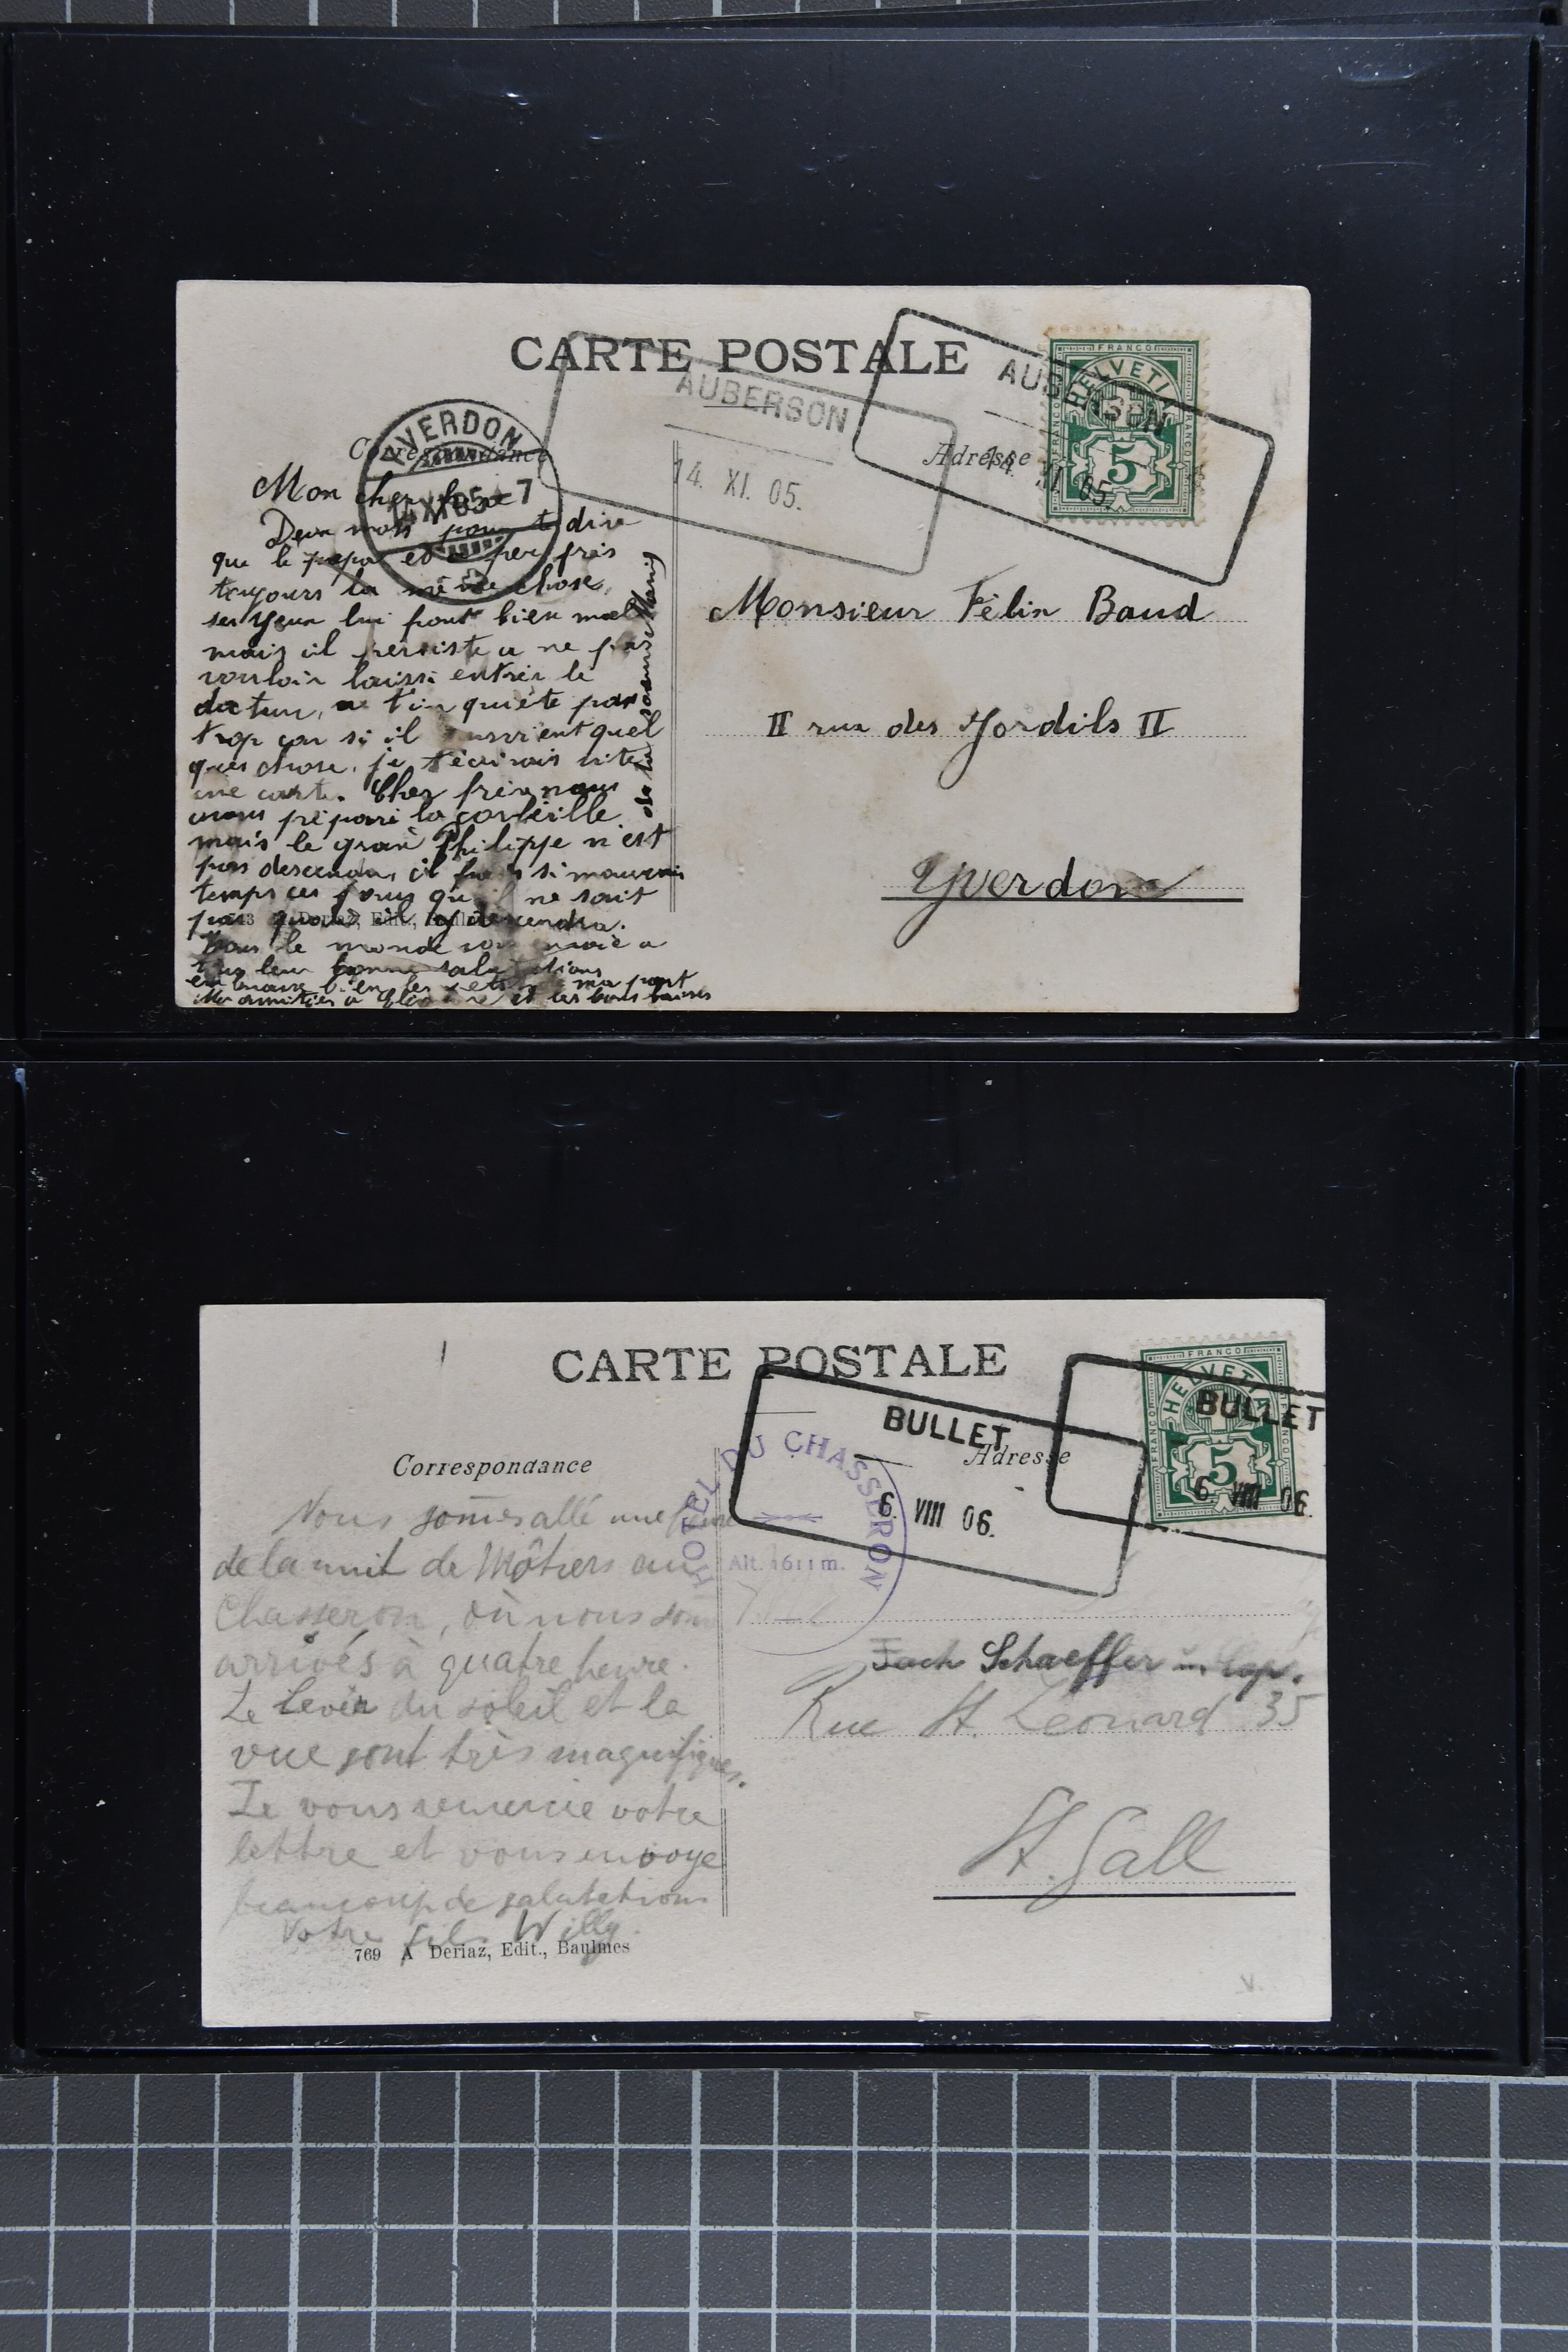 CARTE POSTALE
AUBERSON
14. XI. 05.
AUBERSON
14. XI. 05.
FRANCO
HELVETIA
5
YVERDON
14 XI 05 7
Correspondance
Adresse
Mon cher frère
Deux mots pour te dire
que le papa est à peu près
toujours la même chose,
ses yeux lui font bien mal
mais il persiste a ne pas
vouloir laissé entrer le
docteur, ne t'in quiète pas
trop car si il survient quel
ques chose, je t'écrirais vite
une carte. Cher frère nous
avons préparé la corbeille
mais le grand Philippe n'est
pas descendu, il fait si mauvais
temps ces jours qu'il ne sait
pas quand il descendra.
Tous le monde envoie a
tous leur bonne salutations
ma part
et les bons baisers
Monsieur Félix Baud
II rue des Jordils II
Yverdon
Deriaz, Edit.,
CARTE POSTALE
BULLET
6. VIII 06.
BULLET
6. VIII 06.
FRANCO
HELVETIA
5
HOTEL DU CHASSERON
Alt. 1611 m.
Correspondance
Adresse
Nous somes allé une
de la nuit de Môtiers au
Chasseron, où nous som
arrivés à quatre heure.
Le lever du soleil et la
vue sont très magnifiques.
Je vous remercie votre
lettre et vous envoye
beaucoup de salutations
Votre fils Willy.
Schaeffer
Rue St. Léonard 35
St. Gall
769 A Deriaz, Edit., Baulmes